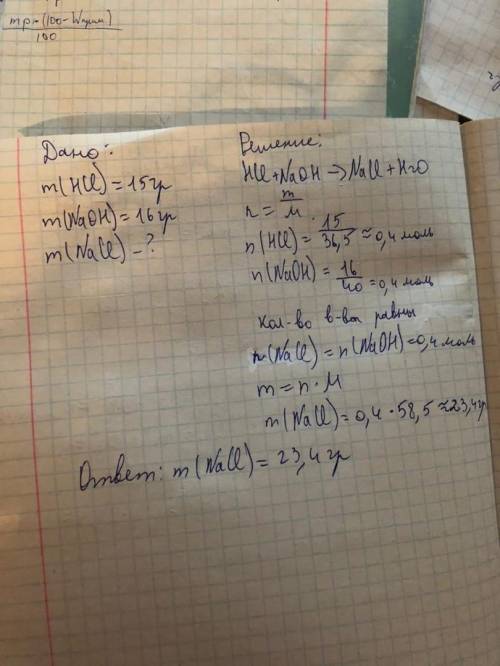 mр-(100-Wприм)
100
Дано:
m(HCl)=15гр
m(NaOH)=16гр
m(NaCl)-?
Решение:
HCl+NaOH→NaCl+H2O
n=m/M
n(HCl)=15/36,5≈0,4 моль
n(NaOH)=16/40=0,4 моль
Кол-во в-ва равны
n(NaCl)=n(NaOH)=0,4 моль
m=n·M
m(NaCl)=0,4·58,5≈23,4гр
Ответ: m(NaCl)=23,4гр